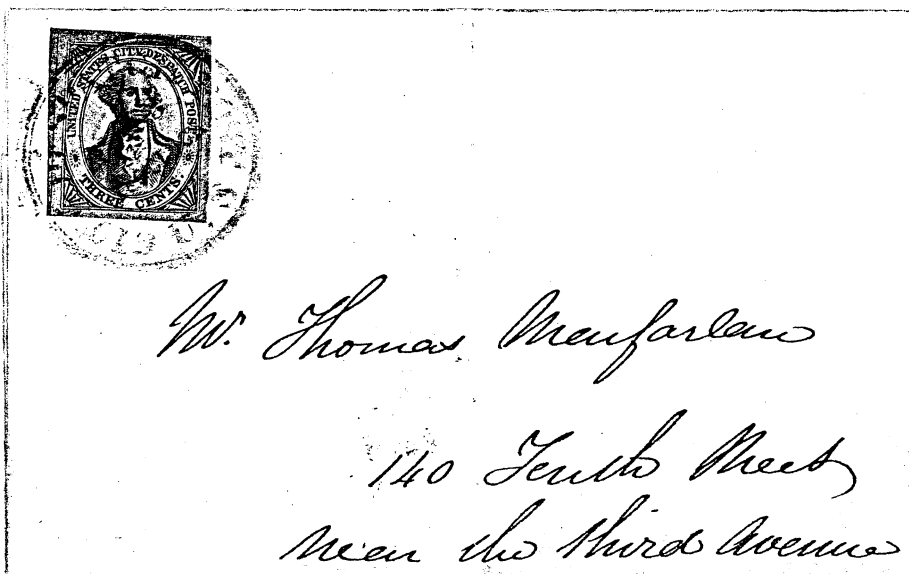 UNITED STATES CITY DESPATCH POST
THREE CENTS.
U.S.
Mr. Thomas Menfarlan
140 Tenth Street
near the third Avenue